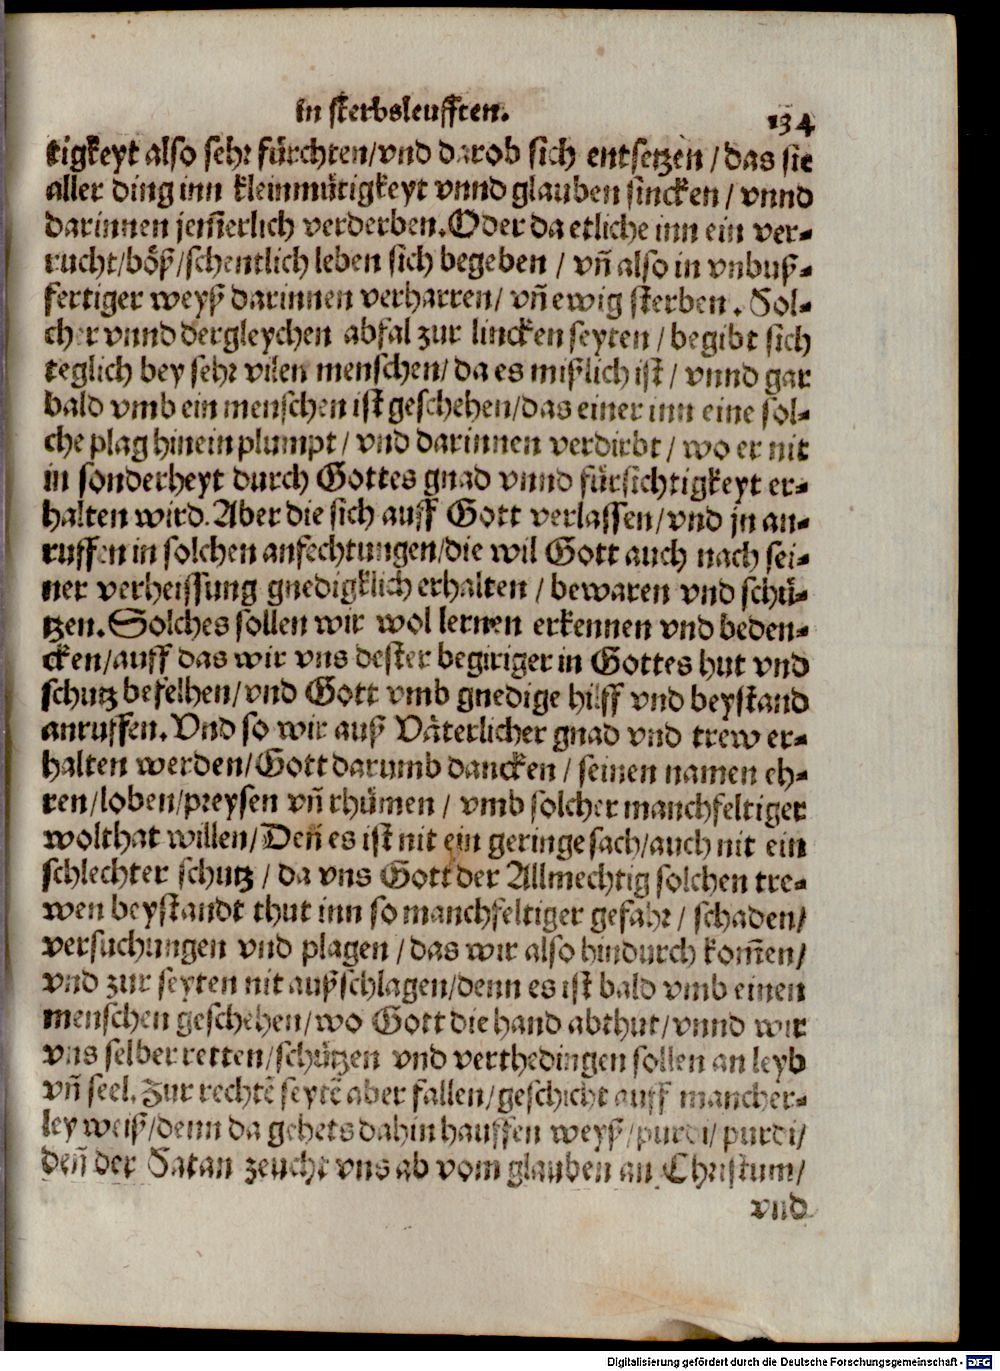 in sterbsleufften.
134
tigkeyt also sehr fürchten/vnd darob sich entsetzen / das sie
aller ding inn kleinmütigkeyt vnnd glauben sincken / vnnd
darinnen jem̃erlich verderben. Oder da etliche inn ein ver-
rucht/böß/schentlich leben sich begeben / vñ also in vnbuß-
fertiger weyß darinnen verharren/ vñ ewig sterben. Sol-
cher vnnd dergleychen abfal zur lincken seyten / begibt sich
teglich bey sehr vilen menschen/ da es mißlich ist / vnnd gar
bald vmb ein menschen ist geschehen/das einer inn eine sol-
che plag hinein plumpt / vnd darinnen verdirbt / wo er nit
in sonderheyt durch Gottes gnad vnnd fürsichtigkeyt er-
halten wird. Aber die sich auff Gott verlassen/vnd jn an-
ruffen in solchen anfechtungen/die wil Gott auch nach sei-
ner verheissung gnedigklich erhalten / bewaren vnd schü-
tzen. Solches sollen wir wol lernen erkennen vnd beden-
cken/auff das wir vns dester begiriger in Gottes hut vnd
schutz befelhen/vnd Gott vmb gnedige hilff vnd beystand
anruffen. Vnd so wir auß Väterlicher gnad vnd trew er-
halten werden/Gott darumb dancken / seinen namen eh-
ren/loben/preysen vñ rhümen / vmb solcher manchfeltiger
wolthat willen/Deñ es ist nit ein geringe sach/auch nit ein
schlechter schutz / da vns Gott der Allmechtig solchen tre-
wen beystandt thut inn so manchfeltiger gefahr / schaden/
versuchungen vnd plagen / das wir also hindurch kom̃en/
vnd zur seyten nit außschlagen/denn es ist bald vmb einen
menschen geschehen/wo Gott die hand abthut/vnnd wir
vns selber retten/schützen vnd verthedingen sollen an leyb
vñ seel. Zur rechtẽ seytẽ aber fallen/geschicht auff mancher-
ley weiß/denn da gehets dahin hauffen weyß/purdi/purdi/
deñ der Satan zeucht vns ab vom glauben an Christum/
vnd
Digitalisierung gefördert durch die Deutsche Forschungsgemeinschaft - DFG